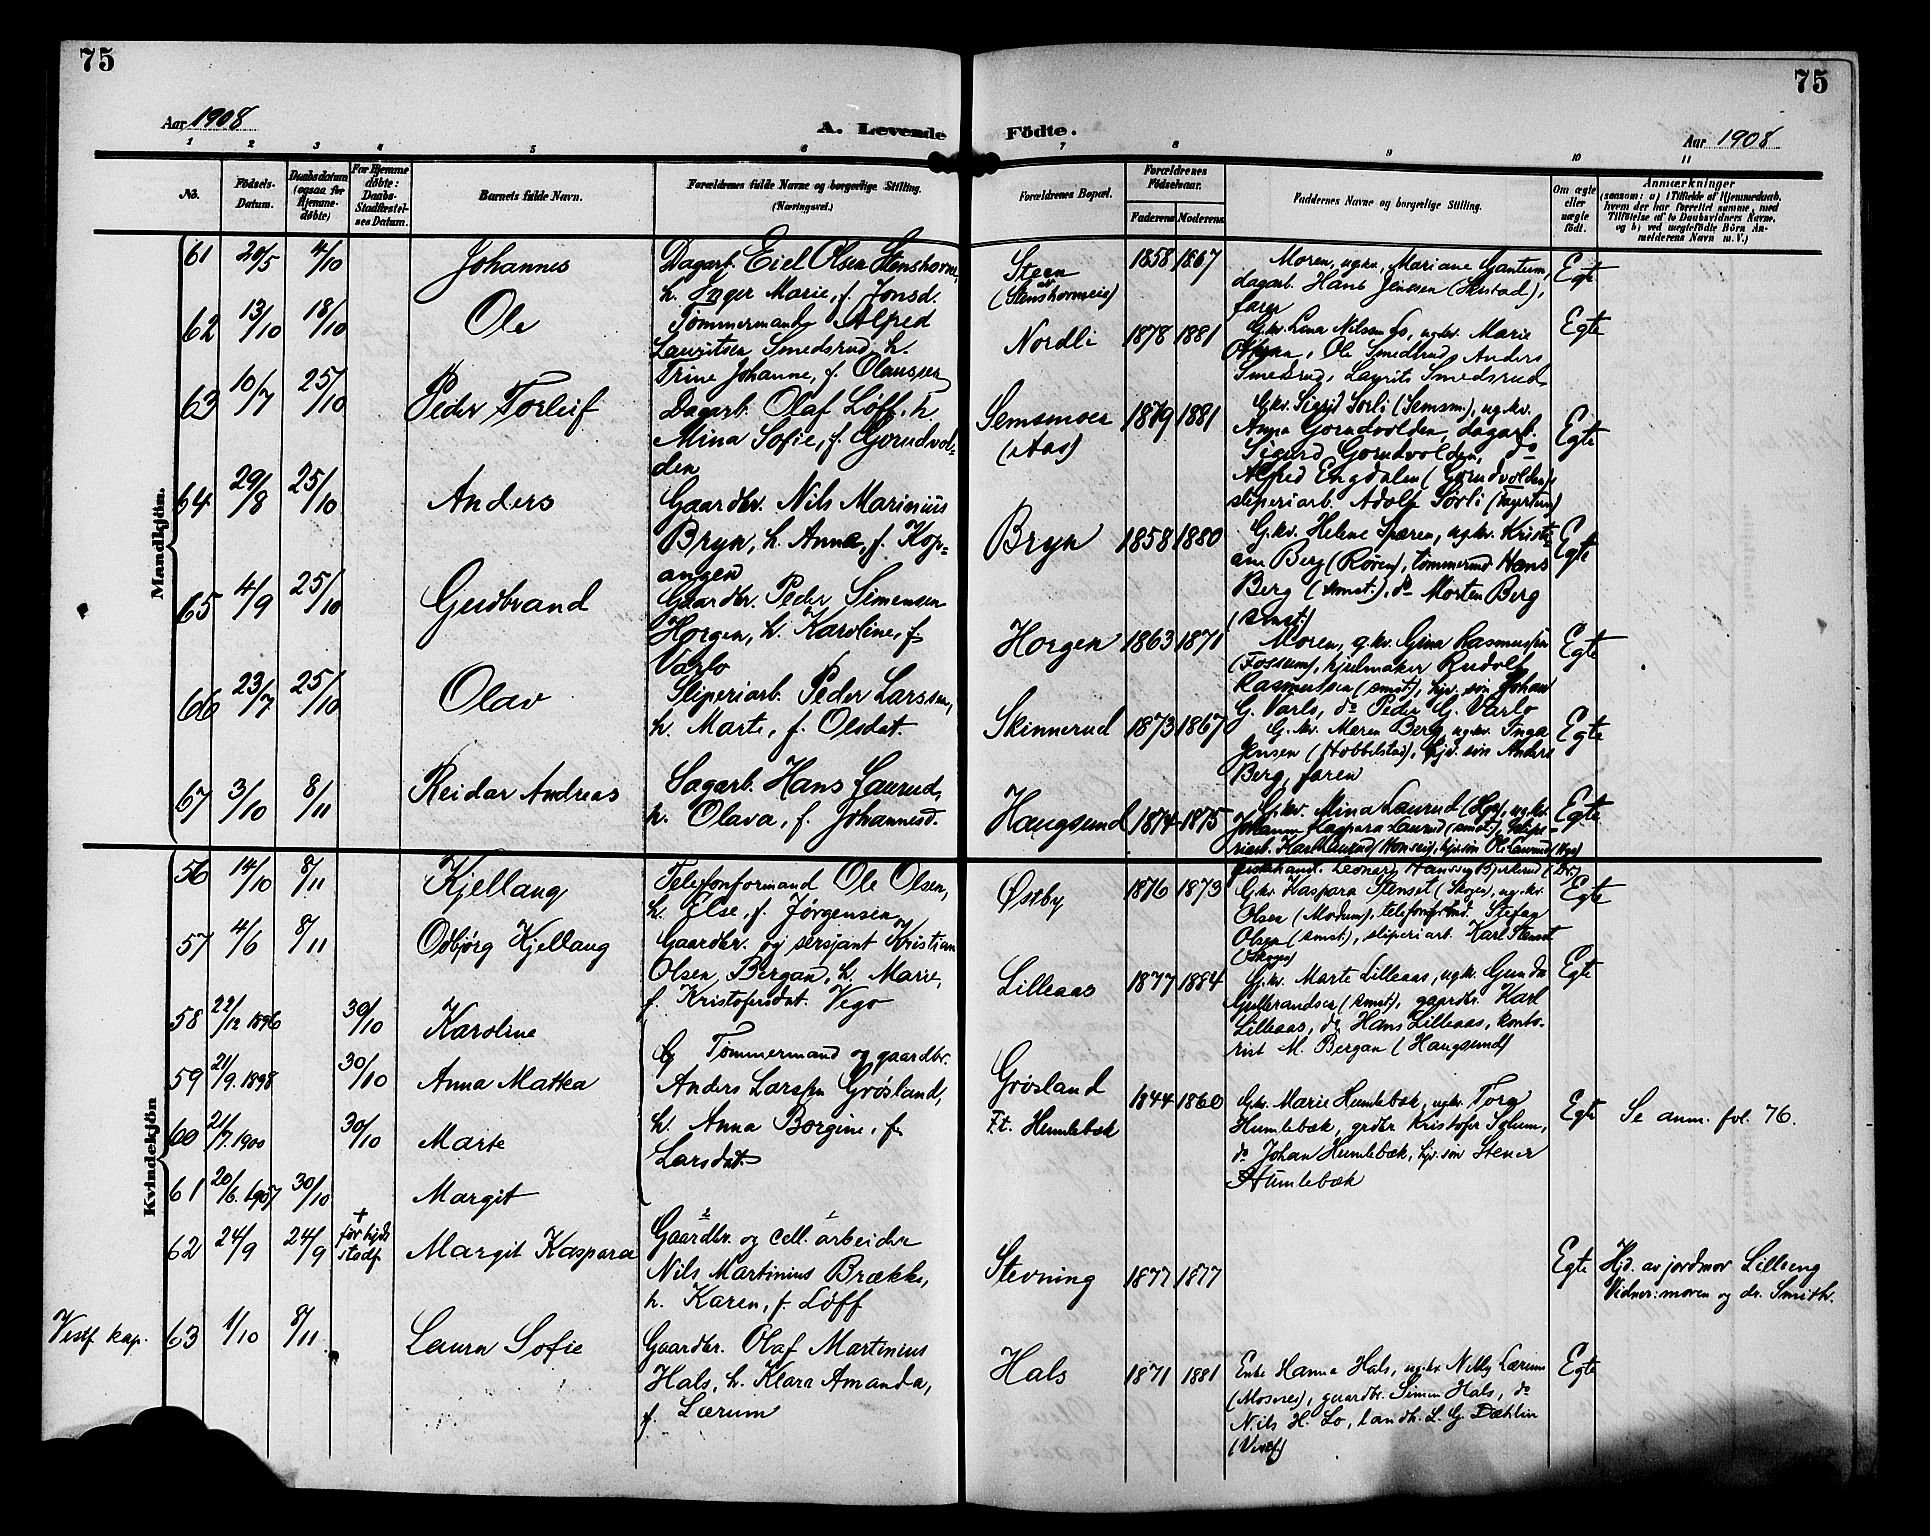 75
75
Aar 1908
A. Levende Födte.
Aar 1908
1 2 3 4 5 6 7 8 9 10 11
No.
Födsels-Datum.
Daabsdatum (ogsaa for Hjemmedöbte)
For Hjemmedöbte: Daabs-Stadfæstelsens Datum.
Barnets fulde Navn.
Forældrenes fulde Navne og borgerlige Stilling.
(Næringsvei.)
Forældrenes Bopæl.
Forældrenes Födselsaar.
Faderens Moderens
Faddernes Navne og borgerlige Stilling.
Om ægte eller uægte födt.
Anmærkninger
(saasom: a) i Tilfælde af Hjemmedaab, hvem der har forrettet samme, med Tilföielse af to Daabsvidners Navne, og b) ved uegtefödte Börn Anmelderens Navn m. V.)
Mandkjön.
61 20/5 4/10 Johannes
Dagarb. Eiel Olsen Stenshorne,
h. Inger Marie, f. Jonsd.
Steen
(Stenshorneie)
1858 1867
Moren, ugkv. Mariane Gantum,
dagarb. Hans Jensen
faren
Egte
62 13/10 18/10 Ole
Tømmermand Alfred
Lauritsen Smedsrud, h.
Trine Johanne, f. Olaussen
Nordli
1878 1881
G.kv. Lina Nilsen Lo, ugkv. Marie
Ole Smedsrud, Anders
Smedsrud, Laurits Smedsrud
Egte
63 10/7 25/10 Peder Torleif
Dagarb. Olaf Løff, h.
Mina Sofie, f. Gorudvol-
den
Semsmoen
(Aas)
1879 1881
G.kv. Sigrid Sørli (Semsm.), ug.kv.
Anna Gorudvolden, dagarb.
Sigurd Gorudvolden, do
Alfred Engdalen (Gorudvolden),
sliperiarb. Adolf Sørli
Egte
64 29/8 25/10 Anders
Gaardbr. Nils Marinius
Bryn, h. Anna, f. Kop-
angen
Bryn
1858 1880
G.kv. Helene Spæren, ug.kv. Kristi-
ane Berg (Røren), tømmermd Hans
Berg (smst.), do Morten Berg
(smst.)
Egte
65 4/9 25/10 Gudbrand
Gaardbr. Peder Simensen
Horgen, h. Karoline, f.
Varlo
Horgen
1863 1871
Moren, g.kv. Gina Rasmussen
(Fossum), hjulmaker Rudolf
Rasmussen (smst.), hjv. søn Johan
G. Varlo, do Peder G. Varlo
Egte
66 23/7 25/10 Olav
Sliperiarb. Peder Larssen,
h. Marte, f. Olsdat.
Skinnerud
1873 1867
G.kv. Maren Berg, ug.kv. Inga
Jensen (Hobbelstad), hjv. søn Anders
Berg, faren
Egte
67 3/10 8/11 Reidar Andreas
Sagarb. Hans Laurud,
h. Olava, f. Johannesd.
Haugsund
1874 1875
G.kv. Mina Laurud, ug.kv.
Johanne Kaspara Laurud (smst.), sliperiarb. Karl Laurud, hjv.søn Ole Laurud
Leonard Hanssen Bjerkerud
Egte
Kvindekjön
56 14/10 8/11 Kjellaug
Telefonformand Ole Olsen,
h. Else, f. Jørgensen
Østby
1876 1873
G.kv. Kaspara Stenset (Skoger), ug.kv.
Olsen (Modum), telefonformd. Stefan
Olsen (smst.), sliperiarb. Karl Stenset
(Skoger)
Egte
57 4/6 8/11 Odbjørg Kjellaug
Gaardbr. og sersjant Kristian
Olsen Bergan, h. Marie,
f. Kristofersdat. Vego
Lilleaas
1877 1884
G.kv. Marte Lilleaas, ugk. Gunda
Gulbrandsen (smst.), gaardbr. Karl
Lilleaas, do Hans Lilleaas, konto-
rist M. Bergan (Haugsund)
Egte
58 22/12 1896 30/10 Karoline
59 21/9. 1898 30/10 Anna Mathea
60 21/7. 1900 30/10 Marte
61 20/6. 1907 30/10 Margit
Tømmermand og gaardbr.
Anders Larssen Grøsland,
h. Anna Borgine, f.
Larsdat.
Grøsland
F.t. Humlebæk
1844 1860
G.kv. Marie Humlebæk, ugkv. Tora
Humlebæk, grdbr Kristofer Solum,
do Johan Humlebæk, hjv. søn Stener
Humlebæk
Egte
Se anm. fol. 76.
62 24/9 24/9 + før hjd. stadf. Margit Kaspara
Gaardbr. og cell. arbeider
Nils Martinius Brække,
h. Karen, f. Løff
Stevning
1877 1877
Egte
Hjd. av jordmor Lilleeng
Vidner: moren og dr. Smith.
Vestf kap.
63 1/10 8/11 Laura Sofie
Gaardbr. Olaf Martinius
Hals, h. Klara Amanda,
f. Lærum
Hals
1871 1881
Enke Hanna Hals, ug.kv. Nelly Lærum
(Mosnes), gaardbr. Simen Hals, do
Nils H. Lo, landh. L. G. Dæhlin
(Vestf)
Egte